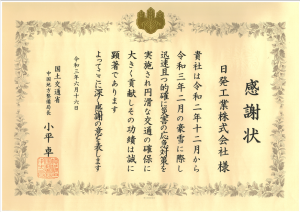 感謝状
日発工業株式会社様
貴社は令和二年十二月から
令和三年二月の豪雪に際し
迅速且つ的確に災害の応急対策を
実施され円滑な交通の確保に
大きく貢献しその功績は誠に
顕著であります
よってここに深く感謝の意を表します
令和三年六月十六日
国土交通省
中国地方整備局長
小平 卓